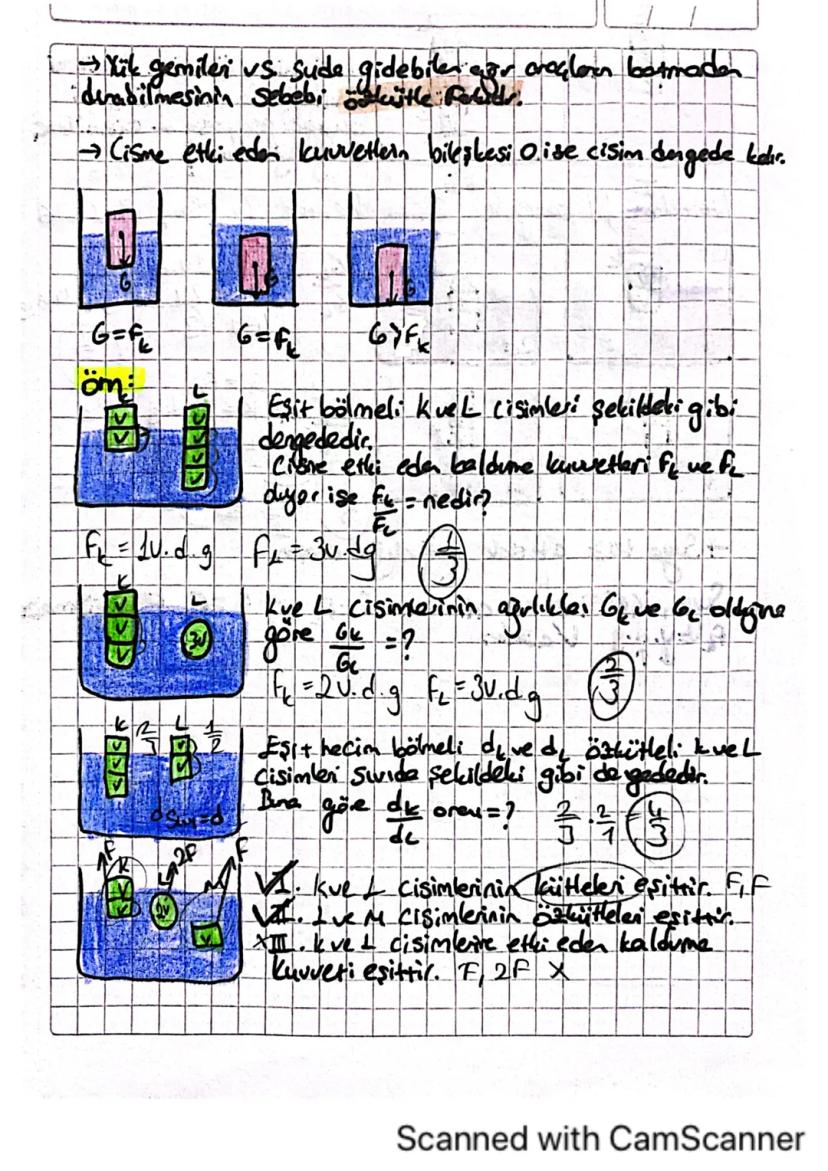 → Yük gemileri vs. suda gidebilen ağır araçların batmadan
durabilmesinin sebebi özkütle farkıdır.
→ Cisme etki eden kuvvetlerin bileşkesi 0 ise cisim dengede kalır.
G G G
G=Fk G=Fk G>Fk
örn:
K L
V V V V V V
Eşit bölmeli K ve L cisimleri şekildeki gibi
dengededir.
Cisme etki eden kaldırma kuvvetleri Fk ve FL
diyor ise Fk/FL = nedir?
Fk = 1V.d.g FL = 3V.dg 1/3
K L
V V V 3V
K ve L cisimlerinin ağırlıkları Gk ve GL olduğuna
göre Gk/GL = ?
Fk = 2V.d.g FL = 3V.d.g 2/3
K 2/3 L 1/2
V V V V V
dsıvı=d
Eşit hacim bölmeli dk ve dL özkütleli K ve L
cisimleri sıvıda şekildeki gibi dengededir.
Buna göre dk/dL oranı = ? 2/3 . 2/1 = 4/3
F K L 2F M F
V V 2V V
✓I. K ve L cisimlerinin kütleleri eşittir. F, F
✓II. L ve M cisimlerinin özkütleleri eşittir.
XIII. K ve L cisimlerine etki eden kaldırma
kuvveti eşittir. F, 2F X
Scanned with CamScanner